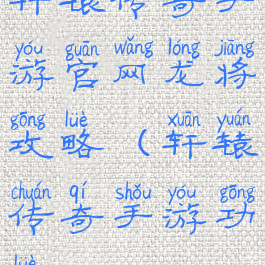 轩辕传奇手
yóu guān wǎng lóng jiāng
游官网龙将
gōng lüè xuān yuán
攻略(轩辕
chuán qí shǒu yóu gōng
传奇手游功
lüè